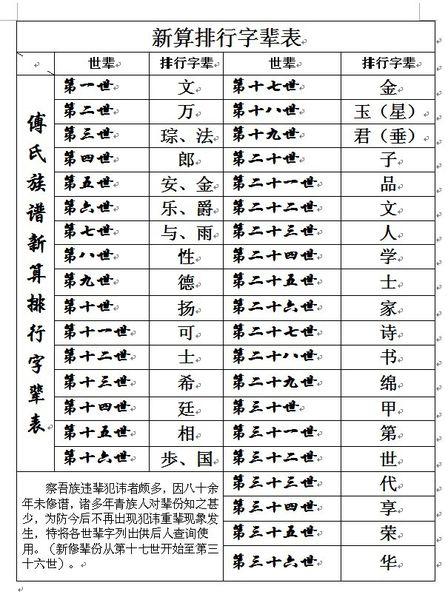 新算排行字辈表
世辈 排行字辈 世辈 排行字辈
傅氏族谱新算排行字辈表
第一世 文 第十七世 金
第二世 万 第十八世 玉（星）
第三世 琮、法 第十九世 君（垂）
第四世 郎 第二十世 子
第五世 安、金 第二十一世 品
第六世 乐、爵 第二十二世 文
第七世 与、雨 第二十三世 人
第八世 性 第二十四世 学
第九世 德 第二十五世 士
第十世 扬 第二十六世 家
第十一世 可 第二十七世 诗
第十二世 士 第二十八世 书
第十三世 希 第二十九世 绵
第十四世 廷 第三十世 甲
第十五世 相 第三十一世 第
第十六世 步、国 第三十二世 世
第三十三世 代
第三十四世 享
第三十五世 荣
第三十六世 华
察吾族违辈犯讳者颇多，因八十余
年未修谱，诸多年青族人对辈份知之甚
少，为防今后不再出现犯讳重辈现象发
生，特将各世辈字列出供后人查询使
用。（新修辈份从第十七世开始至第三
十六世）。